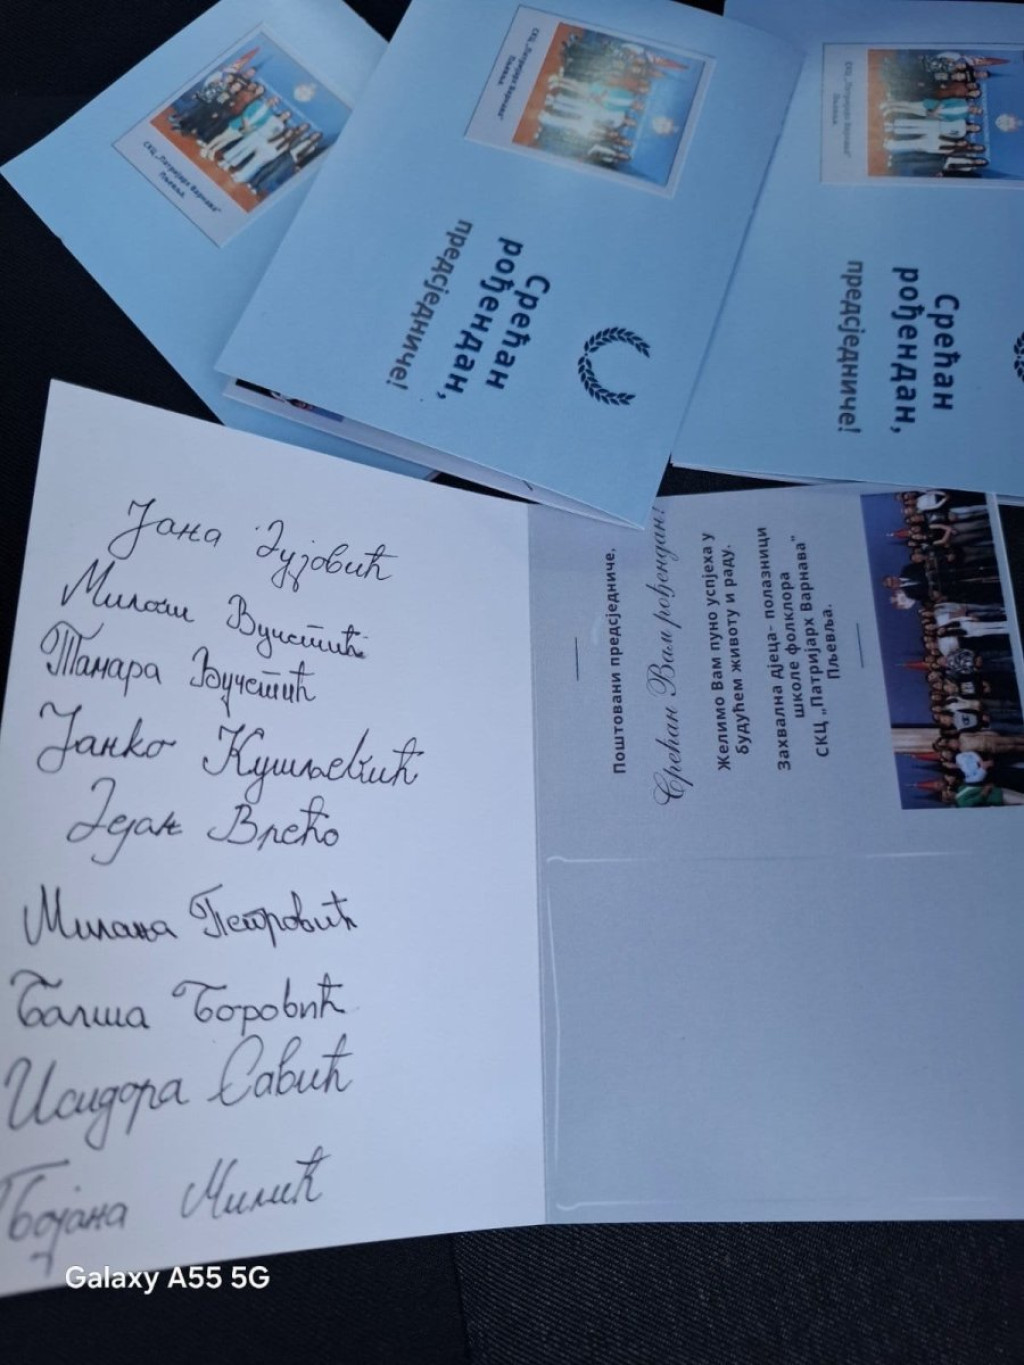 СКЦ „Патријарх Варнава"
Пљевља
СКЦ „Патријарх Варнава"
Пљевља
Срећан
рођендан,
предсједниче!
СКЦ „Патријарх Варнава"
Пљевља
Срећан
рођендан,
предсједниче!
Јана Зујовић
Милош Вучетић
Тамара Вучетић
Јанко Кушљевић
Дејан Врећо
Милана Петровић
Балша Боровић
Исидора Савић
Бојана Милић
Поштовани предсједниче,
Срећан Вам рођендан!
Желимо Вам пуно успјеха у
будућем животу и раду.
Захвална дјеца- полазници
школе фолклора
СКЦ „Патријарх Варнава"
Пљевља.
Galaxy A55 5G